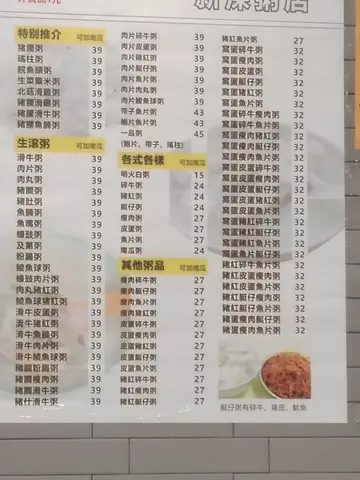 新深粥店
特別推介 可加南瓜
豬膶粥 39
瑤柱粥 39
鯇魚頭粥 39
生菜粟米粥 39
北菇滑雞粥 39
豬膶滑雞粥 39
豬膶滑牛粥 39
豬膶魚腩粥 39
生滾粥 可加南瓜
滑牛粥 39
肉片粥 39
肉丸粥 39
豬膶粥 39
豬肚粥 39
魚腩粥 39
魚嘴粥 39
蠔豉粥 39
及第粥 39
粉腸粥 39
鯪魚球粥 39
蠔豉肉片粥 39
肉丸豬紅粥 39
鯪魚球豬紅粥 39
滑牛皮蛋粥 39
滑牛豬紅粥 39
滑牛魚腩粥 39
滑牛肉片粥 39
滑牛鯪魚球粥 39
豬膶粉腸粥 39
豬膶瘦肉粥 39
豬膶滑牛粥 39
豬什滑牛粥 39
肉片碎牛粥 39
肉片皮蛋粥 39
肉片豬紅粥 39
肉片艇仔粥 39
肉片魚片粥 39
肉片肉丸粥 39
肉片鯪魚球粥 39
帶子魚片粥 43
鮑片魚片粥 43
一品粥 45
(鮑片、帶子、瑤柱)
各式各樣 可加南瓜
明火白粥 15
碎牛粥 24
豬紅粥 24
艇仔粥 24
瘦肉粥 27
皮蛋粥 27
魚片粥 27
南瓜粥 24
其他粥品 可加南瓜
瘦肉碎牛粥 27
瘦肉艇仔粥 27
瘦肉魚片粥 27
瘦肉皮蛋粥 27
皮蛋碎牛粥 27
皮蛋瘦肉粥 27
皮蛋豬紅粥 27
皮蛋艇仔粥 27
皮蛋魚片粥 27
豬紅碎牛粥 27
豬紅瘦肉粥 27
豬紅艇仔粥 27
豬紅魚片粥 27
窩蛋碎牛粥 32
窩蛋瘦肉粥 32
窩蛋皮蛋粥 32
窩蛋艇仔粥 32
窩蛋豬紅粥 32
窩蛋魚片粥 32
窩蛋碎牛瘦肉粥 32
窩蛋碎牛魚片粥 32
窩蛋瘦肉豬紅粥 32
窩蛋瘦肉艇仔粥 32
窩蛋瘦肉魚片粥 32
窩蛋皮蛋碎牛粥 32
窩蛋皮蛋瘦肉粥 32
窩蛋皮蛋艇仔粥 32
窩蛋皮蛋豬紅粥 32
窩蛋皮蛋魚片粥 32
窩蛋豬紅碎牛粥 32
窩蛋豬紅艇仔粥 32
窩蛋豬紅魚片粥 32
窩蛋魚片艇仔粥 32
豬紅碎牛魚片粥 32
豬紅碎牛瘦肉粥 32
豬紅皮蛋瘦肉粥 32
豬紅皮蛋魚片粥 32
豬紅艇仔瘦肉粥 32
豬紅艇仔魚片粥 32
豬蛋皮蛋瘦肉粥 32
豬蛋瘦肉魚片粥 32
艇仔粥有碎牛、豬皮、魷魚